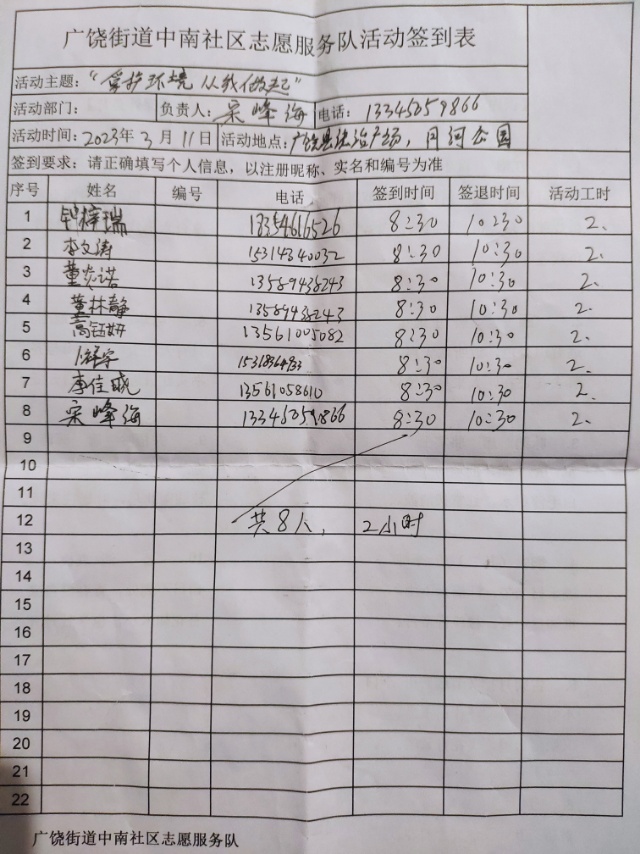 广饶街道中南社区志愿服务队活动签到表
活动主题：“爱护环境 从我做起”
活动部门： 负责人：宋峰海 电话：13345259866
活动时间：2023年3月11日 活动地点：广饶县法治广场，月河公园
签到要求：请正确填写个人信息，以注册昵称、实名和编号为准
序号 姓名 编号 电话 签到时间 签退时间 活动工时
1 梓瑞 18354616526 8:30 10:30 2.
2 李文涛 15314340032 8:30 10:30 2.
3 董奕诺 13589438243 8:30 10:30 2.
4 董林静 13589438243 8:30 10:30 2.
5 高钰妍 13561005082 8:30 10:30 2.
6 8:30 10:30 2.
7 李佳晓 13561058610 8:30 10:30 2.
8 宋峰海 13345259866 8:30 10:30 2.
9
10
11
12 共8人， 2小时
13
14
15
16
17
18
19
20
21
22
广饶街道中南社区志愿服务队